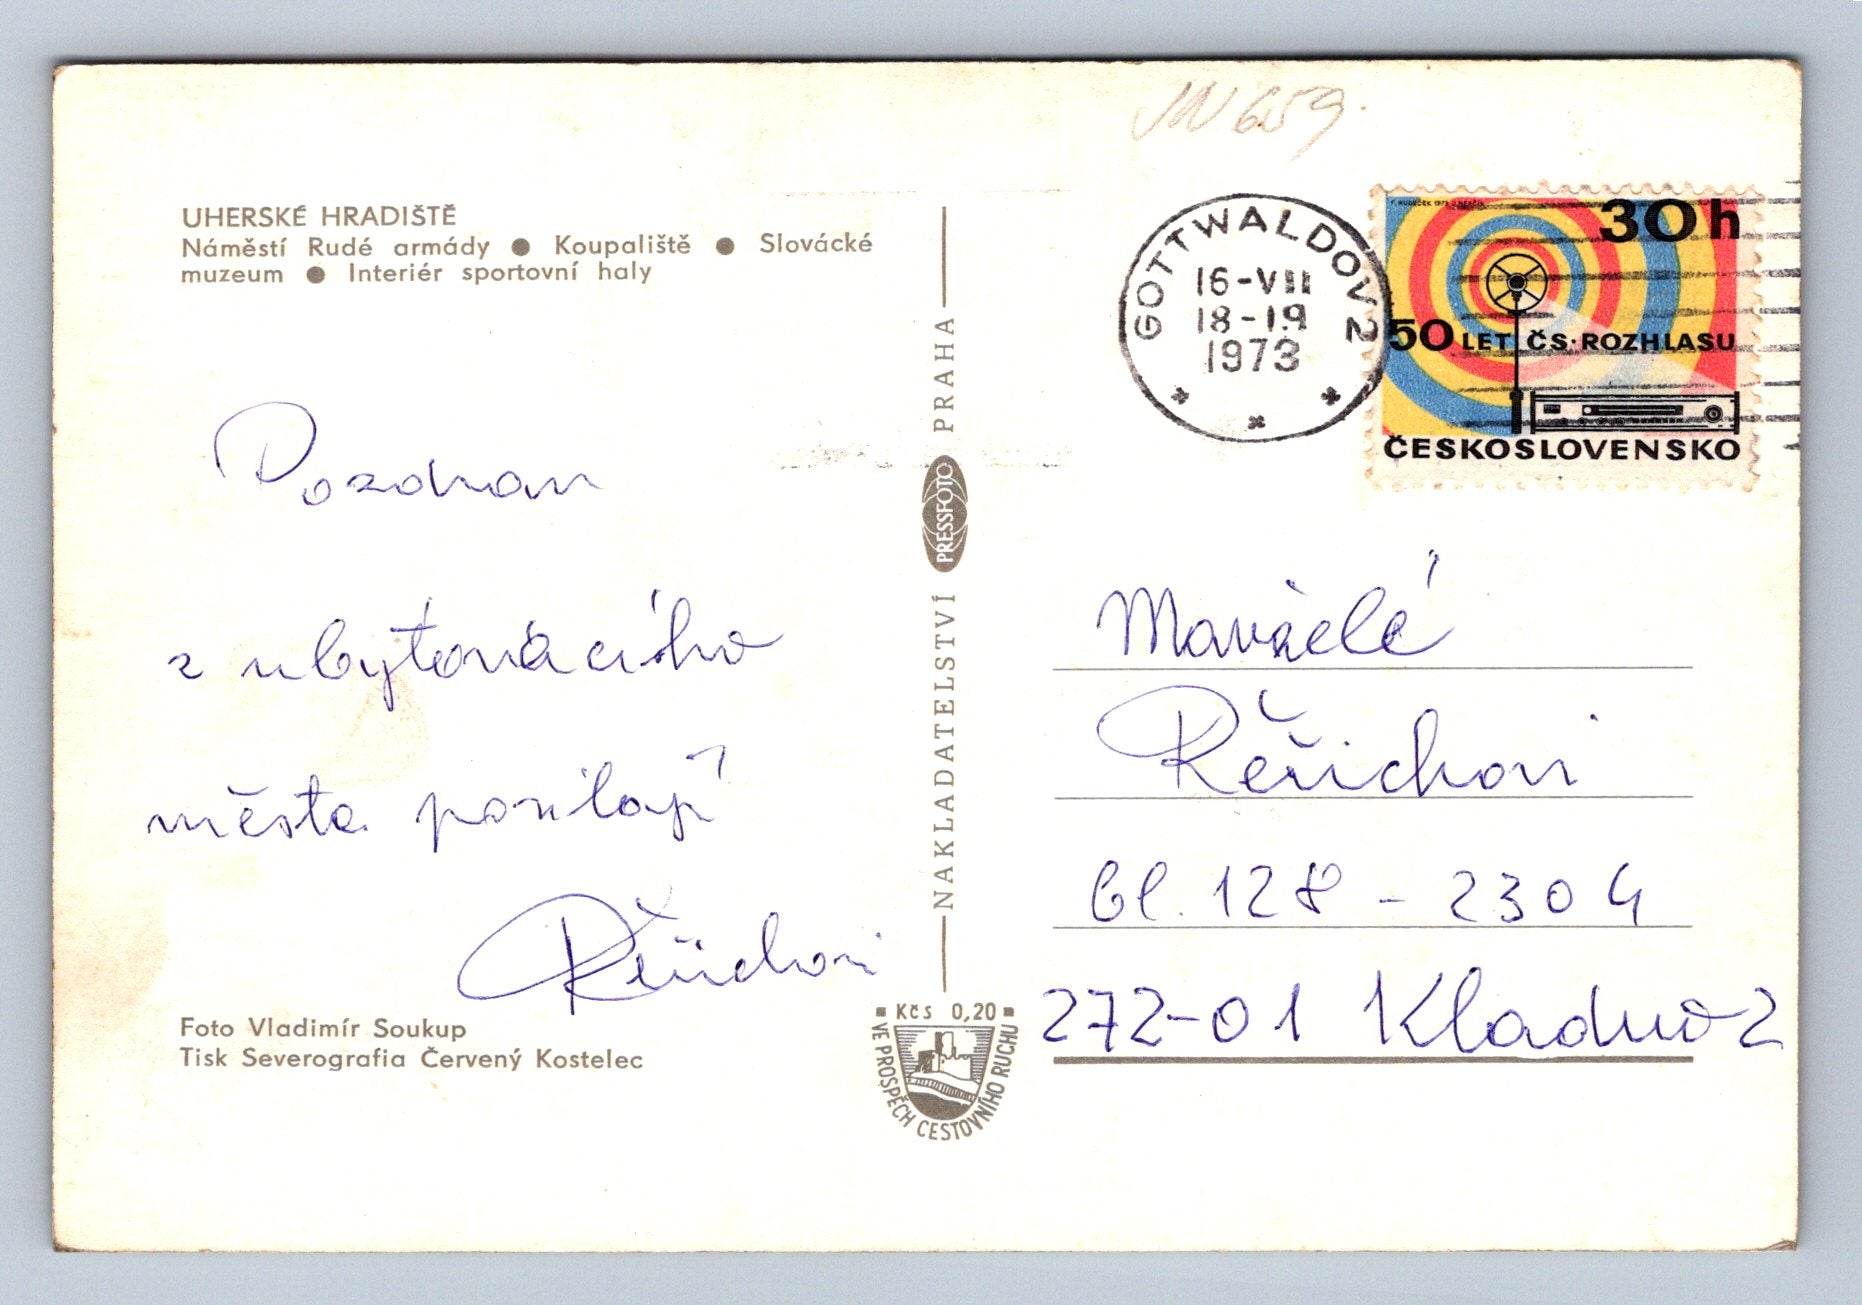 UHERSKÉ HRADIŠTĚ
Náměstí Rudé armády ● Koupaliště ● Slovácké
muzeum ● Interiér sportovní haly
Pozdrav
z ubytovacího
města posílají
Řeřichovi
Foto Vladimír Soukup
Tisk Severografia Červený Kostelec
NAKLADATELSTVÍ PRESSFOTO PRAHA
Kčs 0,20
VE PROSPĚCH CESTOVNÍHO RUCHU
659
GOTTWALDOV 2
16-VII
18-19
1973
30h
50 LET ČS·ROZHLASU
ČESKOSLOVENSKO
Manželé
Řeřichovi
bl. 128 - 2304
272-01 Kladno 2